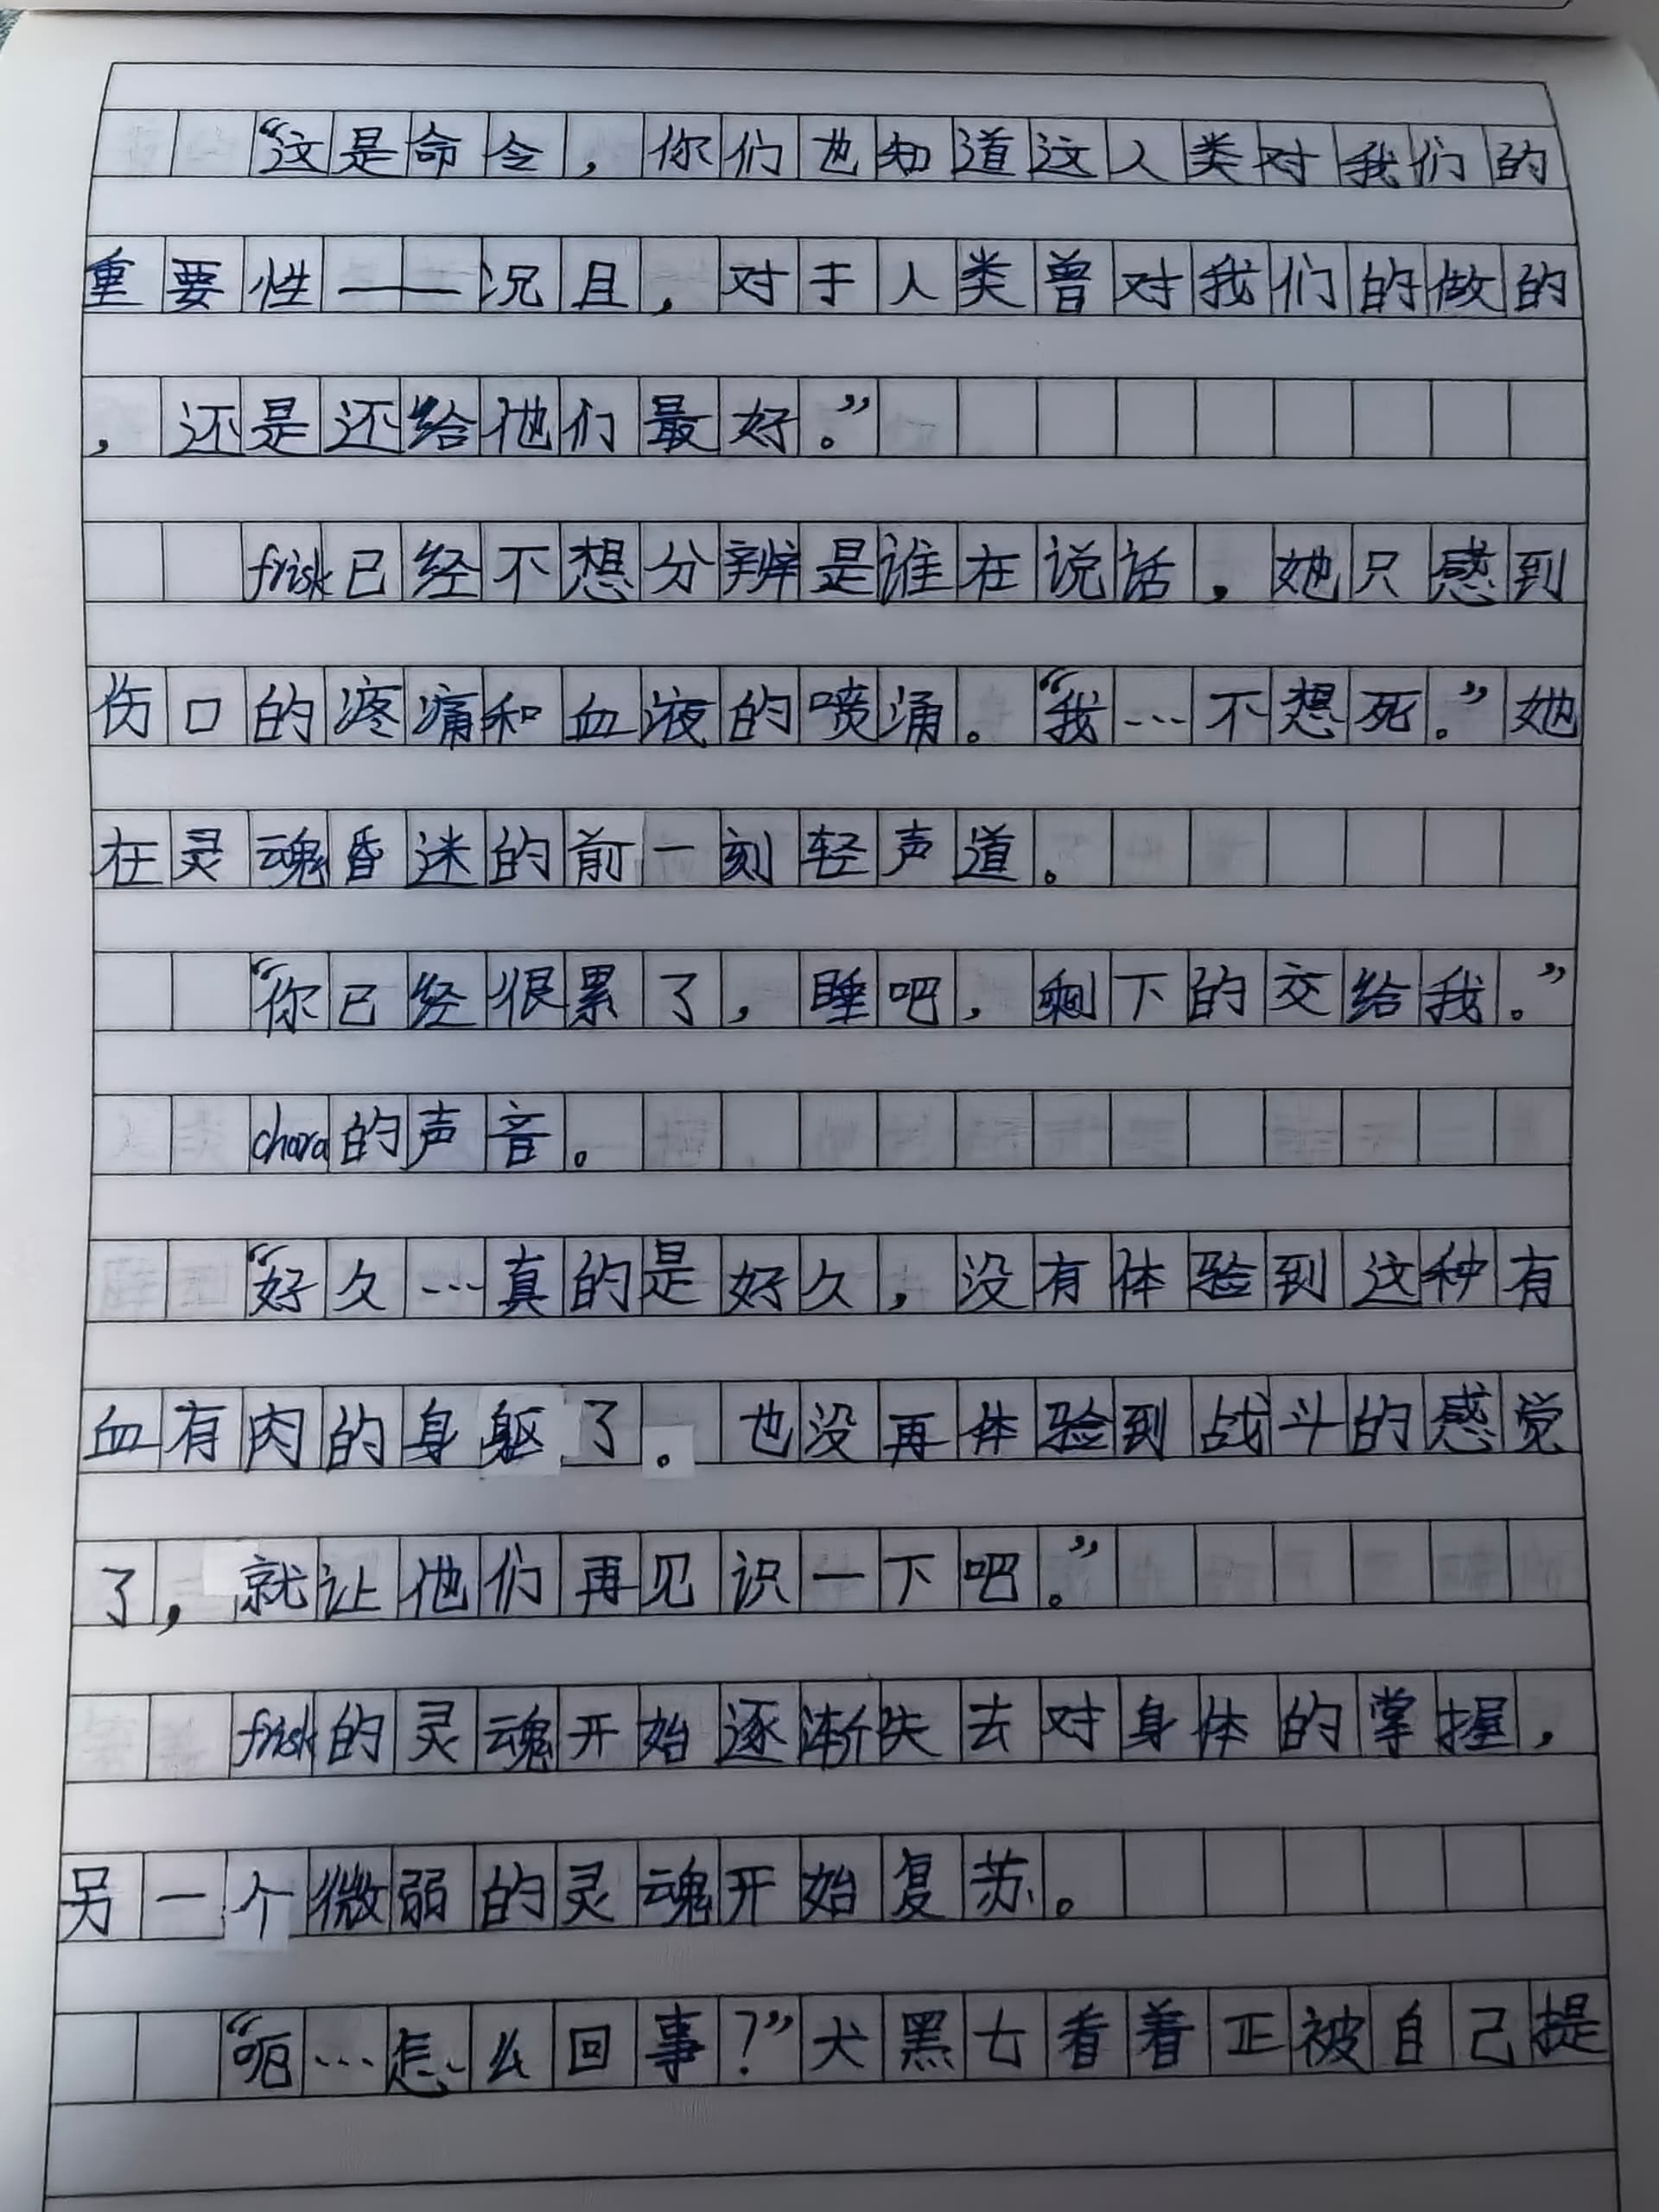 “这是命令，你们也知道这人类对我们的
重要性——况且，对于人类曾对我们的做的
，还是还给他们最好。”
frisk已经不想分辨是谁在说话，她只感到
伤口的疼痛和血液的喷涌。“我…不想死。”她
在灵魂昏迷的前一刻轻声道。
“你已经很累了，睡吧，剩下的交给我。”
chara的声音。
“好久…真的是好久，没有体验到这种有
血有肉的身躯了。也没再体验到战斗的感觉
了，就让他们再见识一下吧。”
frisk的灵魂开始逐渐失去对身体的掌握，
另一个微弱的灵魂开始复苏。
“呃…怎么回事？”犬黑七看着正被自己提